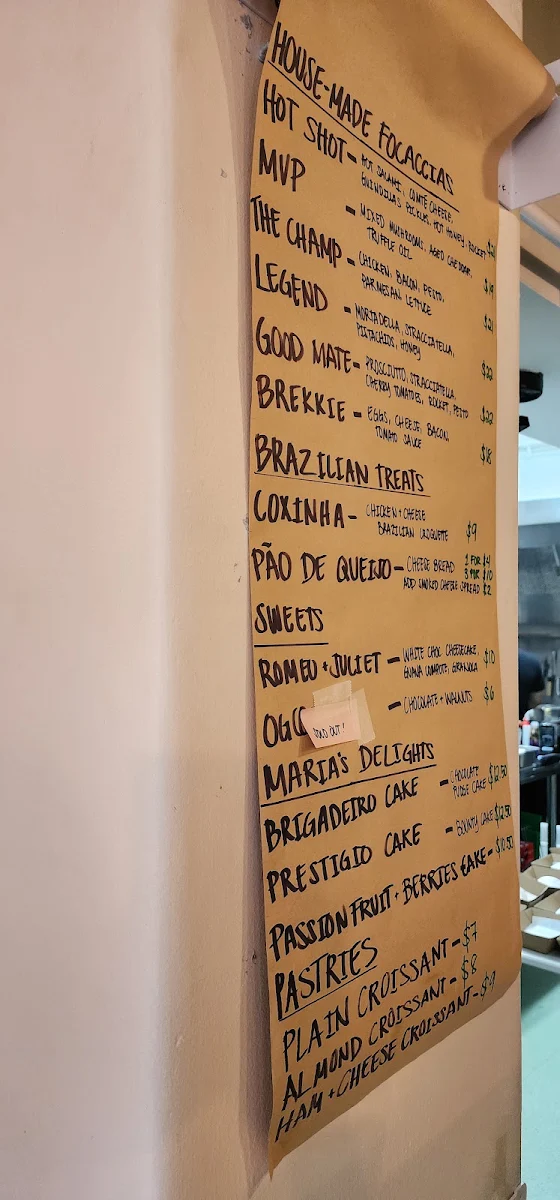 HOUSE-MADE FOCACCIAS
HOT SHOT - HOT SALAMI, COMTE CHEESE,
GUINDILLAS PICKLES, HOT HONEY, ROCKET
MVP - MIXED MUSHROOMS, AGED CHEDDAR,
TRUFFLE OIL $19
THE CHAMP - CHICKEN, BACON, PESTO,
PARMESAN, LETTUCE $21
LEGEND - MORTADELLA, STRACCIATELLA,
PISTACHIOS, HONEY $22
GOOD MATE - PROSCIUTTO, STRACCIATELLA,
CHERRY TOMATOES, ROCKET, PESTO $22
BREKKIE - EGGS, CHEESE, BACON,
TOMATO SAUCE $18
BRAZILIAN TREATS
COXINHA - CHICKEN + CHEESE
BRAZILIAN CROQUETTE $9
PÃO DE QUEIJO - CHEESE BREAD 1 FOR $4
3 FOR $10
ADD SMOKED CHEESE SPREAD $2
SWEETS
ROMEO + JULIET - WHITE CHOC CHEESECAKE,
GUAVA COMPOTE, GRANOLA $10
SOLD OUT! - CHOCOLATE + WALNUTS $6
MARIA'S DELIGHTS
BRIGADEIRO CAKE - CHOCOLATE
FUDGE CAKE $12.50
PRESTIGIO CAKE - BOUNTY CAKE $12.50
PASSION FRUIT + BERRIES CAKE - $10.50
PASTRIES
PLAIN CROISSANT - $7
ALMOND CROISSANT - $8
HAM + CHEESE CROISSANT - $9